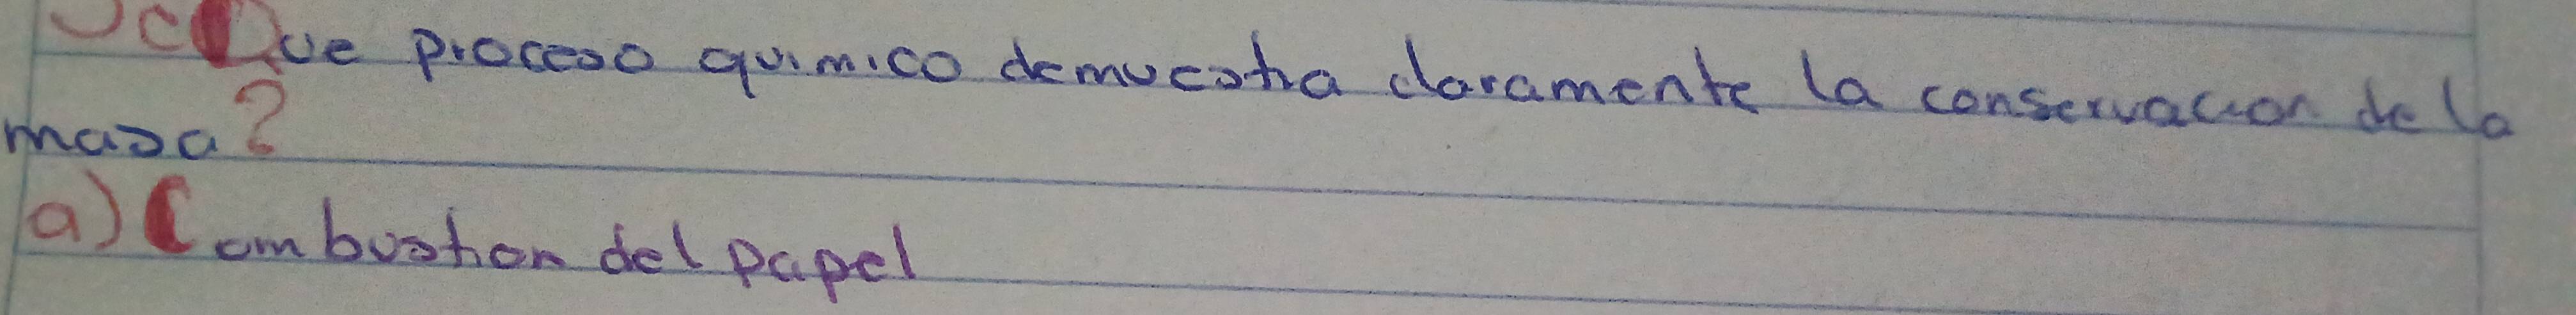 ¿Que proceso quimico demuestra claramente la conservacion de la
masa?
a) Combustion del papel